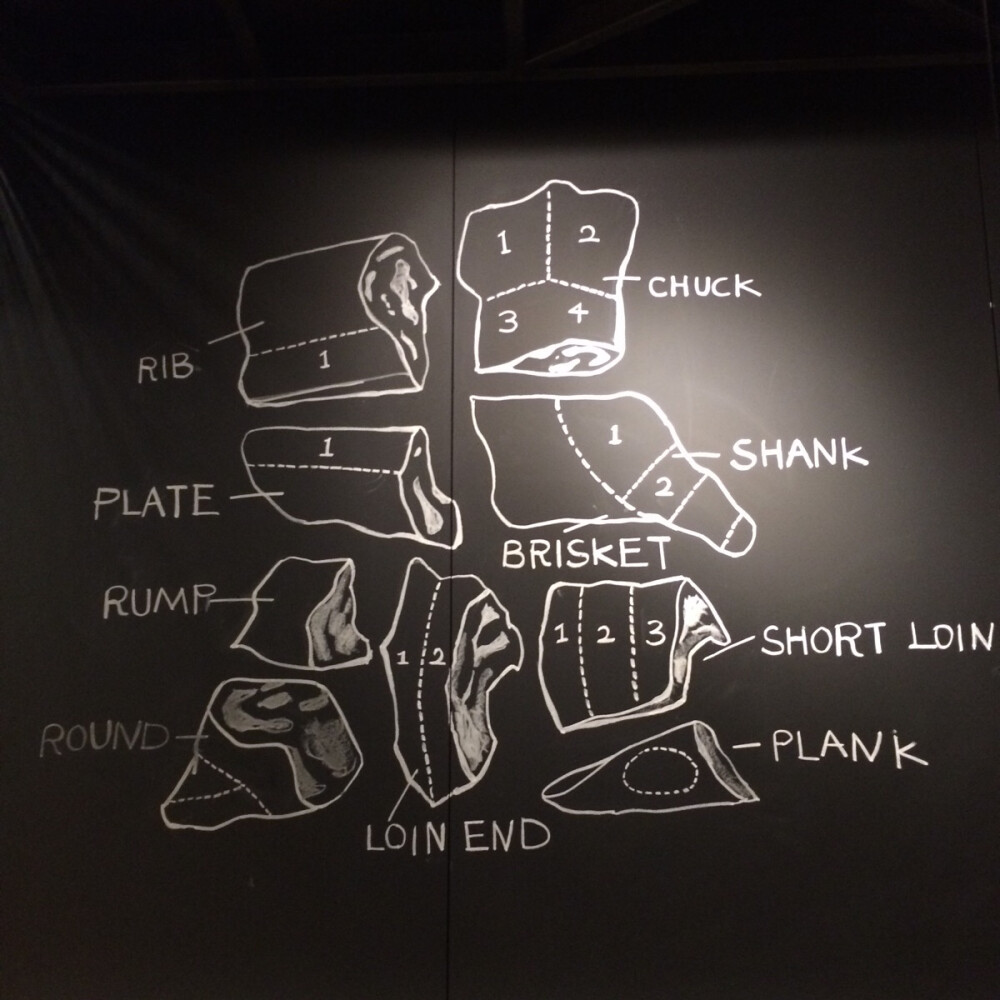 1 2
CHUCK
3 4
RIB
1
1
1
SHANK
PLATE
2
BRISKET
RUMP
1 2
1 2 3
SHORT LOIN
ROUND
PLANK
LOIN END